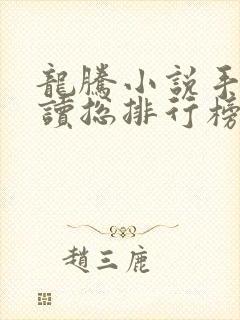 龍騰小説手
讀総排行榜
趙三鹿